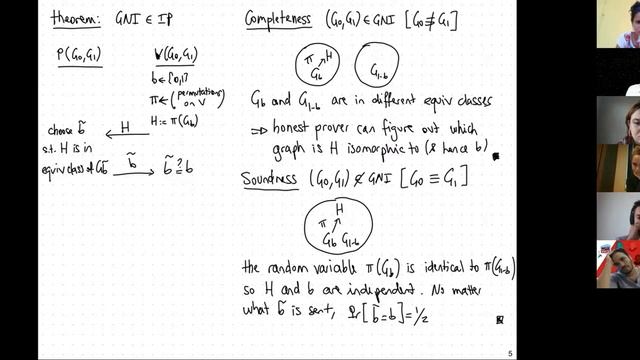 theorem: GNI ∈ IP
P(G0,G1)
V(G0,G1)
b ← {0,1}
π ← (permutations on V)
H := π(Gb)
H
choose b̃
s.t. H is in
equiv class of Gb̃
b̃
b̃ ?= b
Completeness (G0,G1) ∈ GNI [G0 ≢ G1]
π H
Gb
G1-b
Gb and G1-b are in different equiv classes
⇒ honest prover can figure out which
graph is H isomorphic to (& hence b)
Soundness (G0,G1) ∉ GNI [G0 ≡ G1]
H
π
Gb G1-b
the random variable π(Gb) is identical to π(G1-b)
so H and b are independent. No matter
what b̃ is sent, Pr[b̃=b]=1/2
5